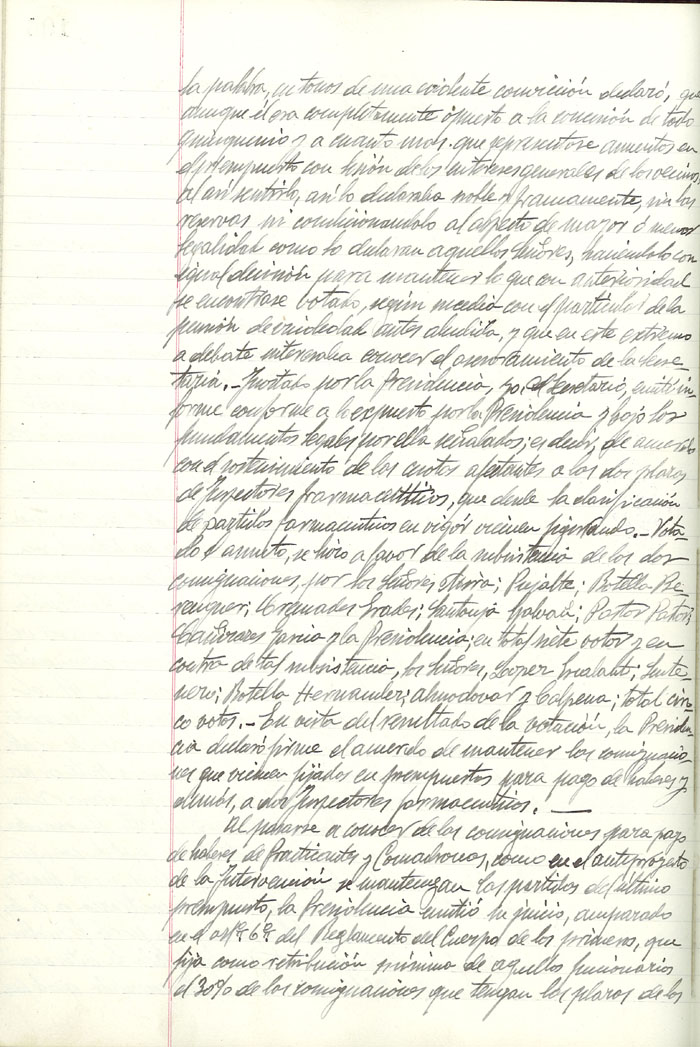 la palabra, en tonos de una evidente convicción declaró, que
aunque él era completamente opuesto a la concesión de todo
quinquenio y a cuanto mas que representase aumentos en
el presupuesto con lesión de los intereses generales de los vecinos,
al así sentirlo, así lo declaraba noble y francamente, sin las
reservas ni condicionándolo al aspecto de mayor ó menor
legalidad como lo declaran aquellos Señores, haciéndolo con
igual decisión para mantener lo que con anterioridad
se encontrase votado, según sucedió con el particular de la
pensión de viudedad antes aludida, y que en este extremo
a debate interesaba conocer el asesoramiento de la Secre-
taria.- Invitado por la Presidencia, yo, el Secretario, emití in-
forme conforme a lo expuesto por la Presidencia y bajo los
fundamentos legales por ella señalados; es decir, de acuerdo
con el sostenimiento de las cuotas afectantes a las dos plazas
de Inspectores farmacéuticos, que desde la clasificación
de partidos farmacéuticos en vigor vienen figurando.- Vota-
do el asunto, se hizo a favor de la subsistencia de las dos
consignaciones, por los Señores, Pujalte; Botella Be-
renguer; Granados Grades; Santonja Galvañ; Pastor Pastor;
Cañizares Garcia y la Presidencia; en total siete votos y en
contra de tal subsistencia, los Señores, Lopez; Sente-
nero; Botella Hernandez; Almodovar y Calpena; total cin-
co votos.- En vista del resultado de la votación, la Presiden-
cia declaró firme el acuerdo de mantener las consignacio-
nes que vienen fijadas en presupuestos para pago de haberes y
demás, a dos Inspectores farmacéuticos. —
Al pasarse a conocer de las consignaciones para pago
de haberes de Practicantes y Comadronas, como en el anteproyecto
de la Intervención se mantengan las partidas del último
presupuesto, la Presidencia emitió su juicio, amparado
en el artº 6º del Reglamento del Cuerpo de los primeros, que
fija como retribución mínima de aquellos funcionarios
el 30% de las consignaciones que tengan las plazas de los